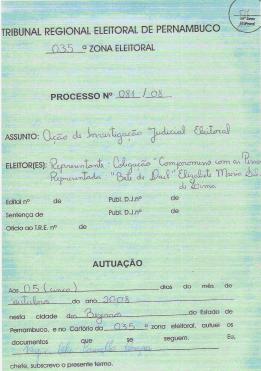 TRIBUNAL REGIONAL ELEITORAL DE PERNAMBUCO
035 ª ZONA ELEITORAL
PROCESSO Nº 081 / 08
ASSUNTO: Ação de Investigação Judicial Eleitoral
ELEITOR(ES): Representante: Coligação "Compromisso com
Representada "Elizabete Maria
de Lima
Edital nº de Publ. D.J.nº de
Sentença de Publ. D.J.nº de
Ofício ao T.R.E. nº de
AUTUAÇÃO
Aos 05 (cinco) dias do mês de
outubro do ano 2008
nesta cidade dos Bezerros do Estado de
Pernambuco, e no Cartório da 035 ª zona eleitoral, autuei os
documentos que se seguem. Eu,
chefe, subscrevo o presente termo.